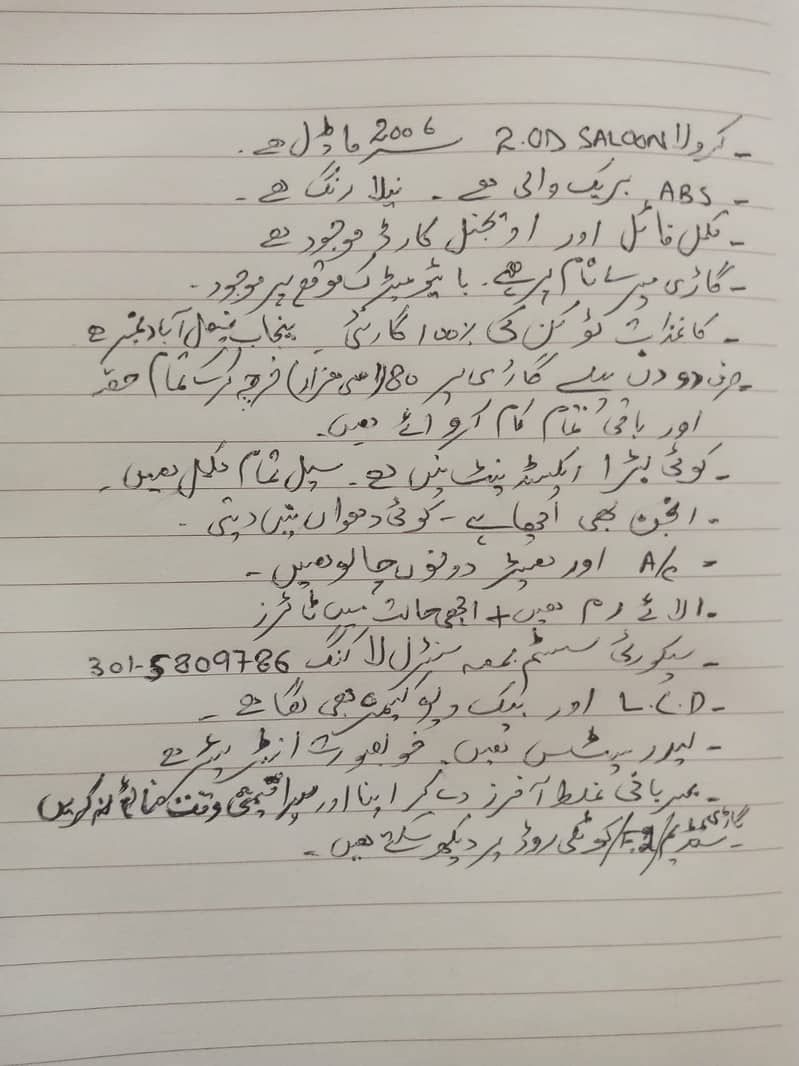 - کرولا 2.0D SALOON سنہ 2006 ماڈل ہے.
- ABS بریک والی ہے - نیلا رنگ ہے -
- مکمل فائل اور اوریجنل کارڈ موجود ہے
- گاڑی میرے نام پر ہے. بائیومیٹرک موقع پر موجود -
- کاغذات ٹوکن کی 100% گارنٹی پنجاب فیصل آباد نمبر ہے
- صرف دو دن پہلے گاڑی پر 80 (اسی ہزار) خرچ کر کے تمام
اور باقی تمام کام کروائے ہیں.
- کوئی بڑا ایکسیڈینٹ نہیں ہے - سیل تمام مکمل ہیں -
- انجن بھی اچھا ہے - کوئی دھواں نہیں دیتی -
- A/C اور ہیٹر دونوں چالو ہیں -
- الائے رم ہیں + اچھی حالت میں ٹائرز
- سیکورٹی سسٹم بمعہ سنٹرل لاکنگ 301-5809786
- L.C.D اور بیک ویو کیمرہ بھی لگا ہے -
- لیدر سیٹس ہیں. خوبصورت انٹیریئر ہے
- مہربانی غلط آفرز دے کر اپنا اور میرا قیمتی وقت ضائع نہ کریں
- گاڑی F-2/ کوٹلی روڈ پر دیکھ سکتے ہیں -